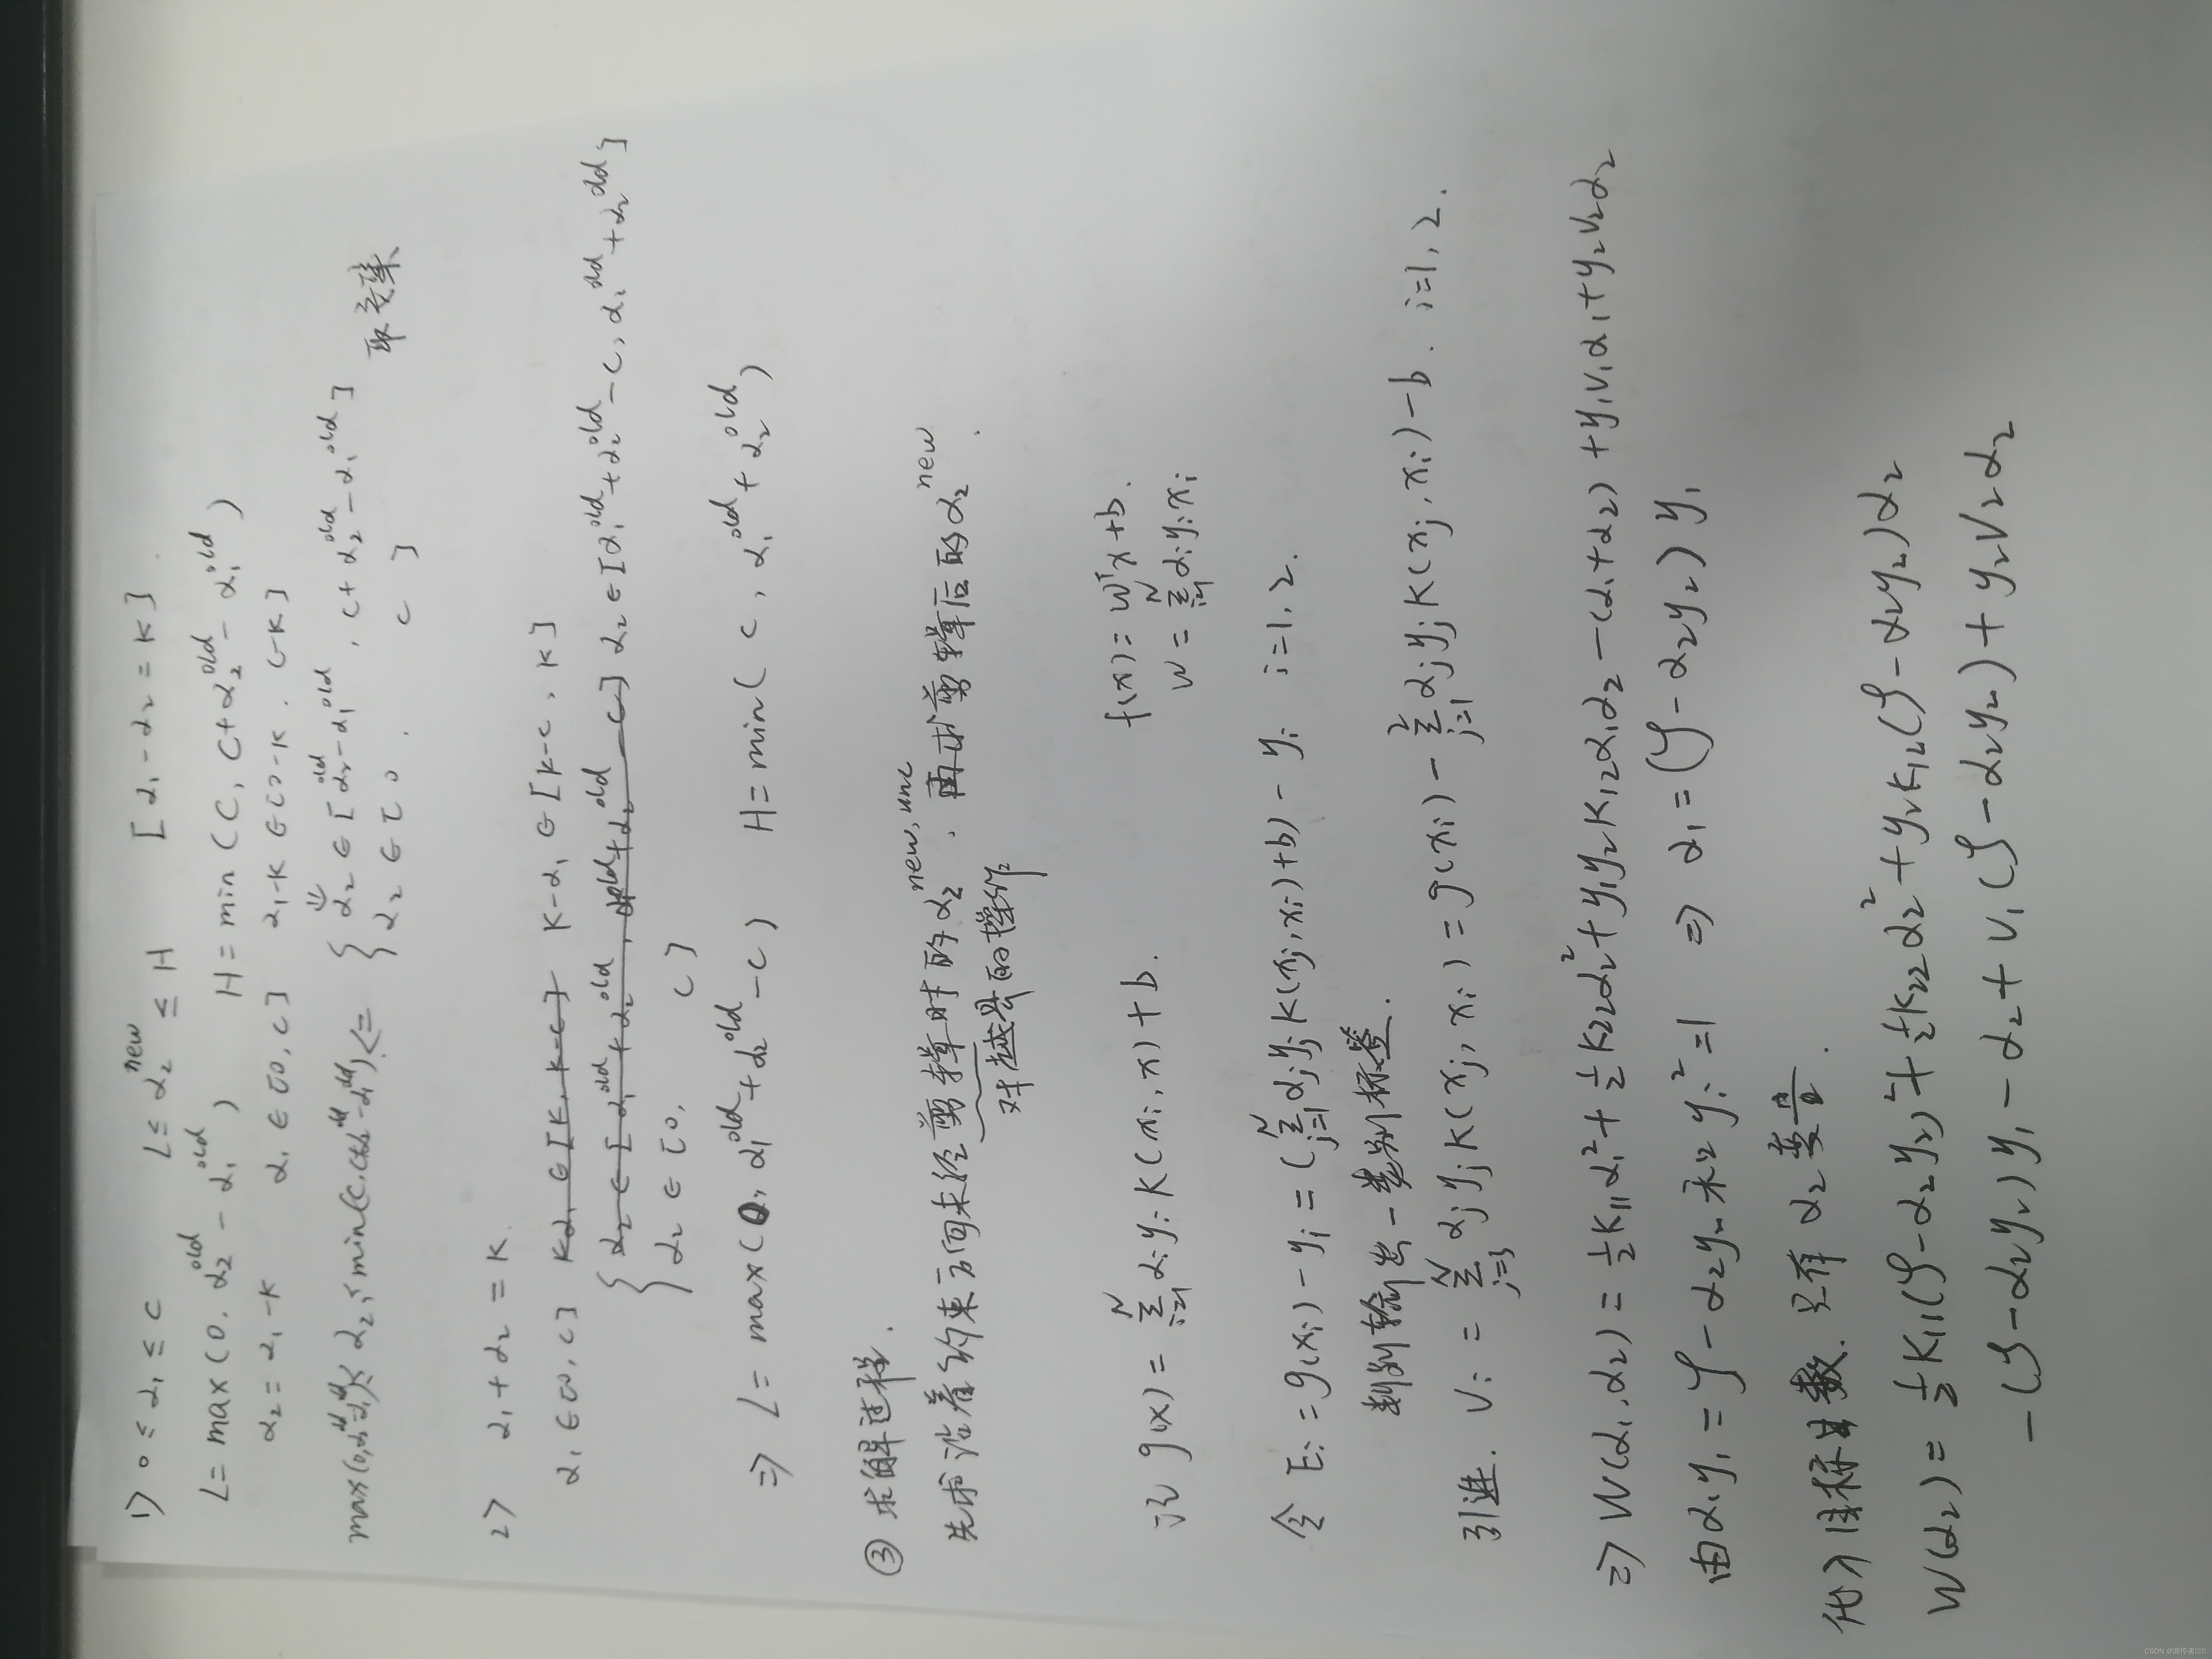 1) 0 ≤ α₁ ≤ C L ≤ α₂^new ≤ H [α₁ - α₂ = K]
L = max(0, α₂^old - α₁^old) H = min(C, C + α₂^old - α₁^old)
α₂ = α₁ - K α₁ ∈ [0, C] α₁ - K ∈ [0 - K, C - K]
⇓
≤ α₂ ≤ min(C, C+α₂^old-α₁^old) <= { α₂ ∈ [α₂^old - α₁^old, C + α₂^old - α₁^old] 取交集
α₂ ∈ [0, C]
2) α₁ + α₂ = K.
α₁ ∈ [0, C] Kα₁ ∈ [K, K-C] K - α₁ ∈ [K - C, K]
{ α₂ ∈ [α₁^old + α₂^old, α₁^old + α₂^old - C] α₂ ∈ [α₁^old + α₂^old - C, α₁^old + α₂^old]
α₂ ∈ [0, C]
⇒ L = max(0, α₁^old + α₂^old - C) H = min(C, α₁^old + α₂^old)
③ 求解过程.
先求沿着约束方向未经剪辑时的 α₂^new,unc, 再求剪辑后的 α₂^new.
对越界的操作
记 g(x) = Σ_{i=1}^N αᵢyᵢK(xᵢ, x) + b. f(x) = wᵀx + b.
w = Σ_{i=1}^N αᵢyᵢxᵢ
令 Eᵢ = g(xᵢ) - yᵢ = (Σ_{j=1}^N αⱼyⱼK(xⱼ, xᵢ) + b) - yᵢ i = 1, 2.
判别输出 - 类别标签.
引进. vᵢ = Σ_{j=3}^N αⱼyⱼK(xⱼ, xᵢ) = g(xᵢ) - Σ_{j=1}^2 αⱼyⱼK(xⱼ, xᵢ) - b. i=1, 2.
⇒ W(α₁, α₂) = ½K₁₁α₁² + ½K₂₂α₂² + y₁y₂K₁₂α₁α₂ - (α₁+α₂) + y₁v₁α₁ + y₂v₂α₂
由 α₁y₁ = ζ - α₂y₂ 和 yᵢ² = 1 ⇒ α₁ = (ζ - α₂y₂)y₁
代入目标函数. 只有 α₂ 变量.
W(α₂) = ½K₁₁(ζ - α₂y₂)² + ½K₂₂α₂² + y₂K₁₂(ζ - α₂y₂)α₂
- (ζ - α₂y₂)y₁ - α₂ + v₁(ζ - α₂y₂) + y₂v₂α₂
CSDN